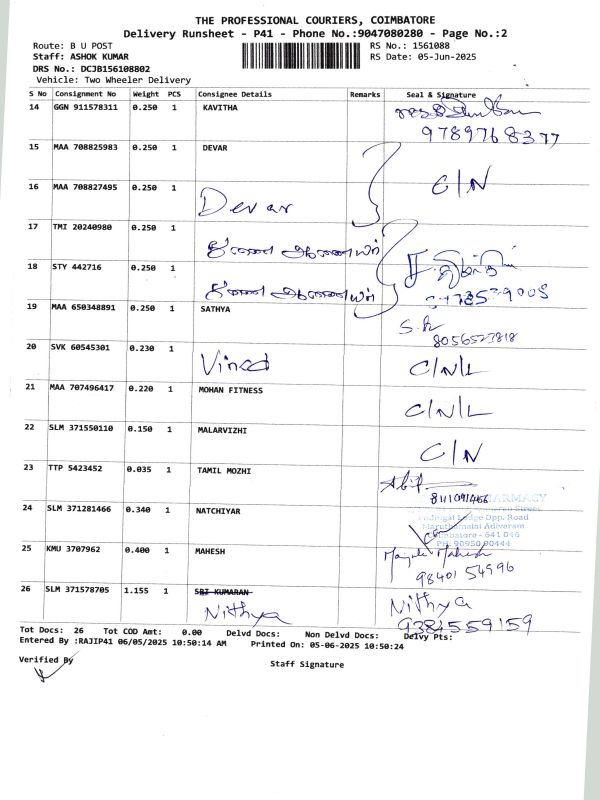 THE PROFESSIONAL COURIERS, COIMBATORE
Delivery Runsheet - P41 - Phone No.:9047080280 - Page No.:2
Route: B U POST RS No.: 1561088
Staff: ASHOK KUMAR RS Date: 05-Jun-2025
DRS No.: DCJB156108802
Vehicle: Two Wheeler Delivery
S No Consignment No Weight PCS Consignee Details Remarks Seal & Signature
14 GGN 911578311 0.250 1 KAVITHA
9789768377
15 MAA 708825983 0.250 1 DEVAR
C/N
16 MAA 708827495 0.250 1
Devar
17 TMI 20240980 0.250 1
18 STY 442716 0.250 1
19 MAA 650348891 0.250 1 SATHYA
20 SVK 60545301 0.230 1
Vinod C/N/L
21 MAA 707496417 0.220 1 MOHAN FITNESS
C/N/L
22 SLM 371550110 0.150 1 MALARVIZHI
C/N
23 TTP 5423452 0.035 1 TAMIL MOZHI
24 SLM 371281466 0.340 1 NATCHIYAR
Lodge Opp. Road
Maruthamalai Adivaram
Coimbatore - 641 046
PH: 90950 90444
25 KMU 3707962 0.400 1 MAHESH
Mahesh
98401 54996
26 SLM 371578705 1.155 1 SRI KUMARAN
Nithya Nithya
9384559159
Tot Docs: 26 Tot COD Amt: 0.00 Delvd Docs: Non Delvd Docs: Delvy Pts:
Entered By :RAJIP41 06/05/2025 10:50:14 AM Printed On: 05-06-2025 10:50:24
Verified By
Staff Signature